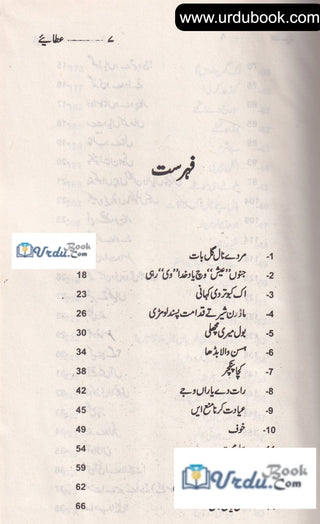 www.urdubook.com
۷ ——— عطائیے
فہرست
Urdu Book .Com
1- مردے نال گل بات
2- جنہوں ’’عیش‘‘ وچ یاد خدا ’’وی‘‘ رہی 18
3- اک کبوتر دی کہانی 23
4- ماڈرن شیر تے قدامت پسند لومڑی 26
5- بول میری مچھلی 30
6- ہسن والا بڈھا 34
7- کچا پنکچر 38
8- رات دے یاراں وجے 42
9- عیادت کرنا منع ایں 45
10- خوف 49
54
59
62
66
Urdu Book .Com